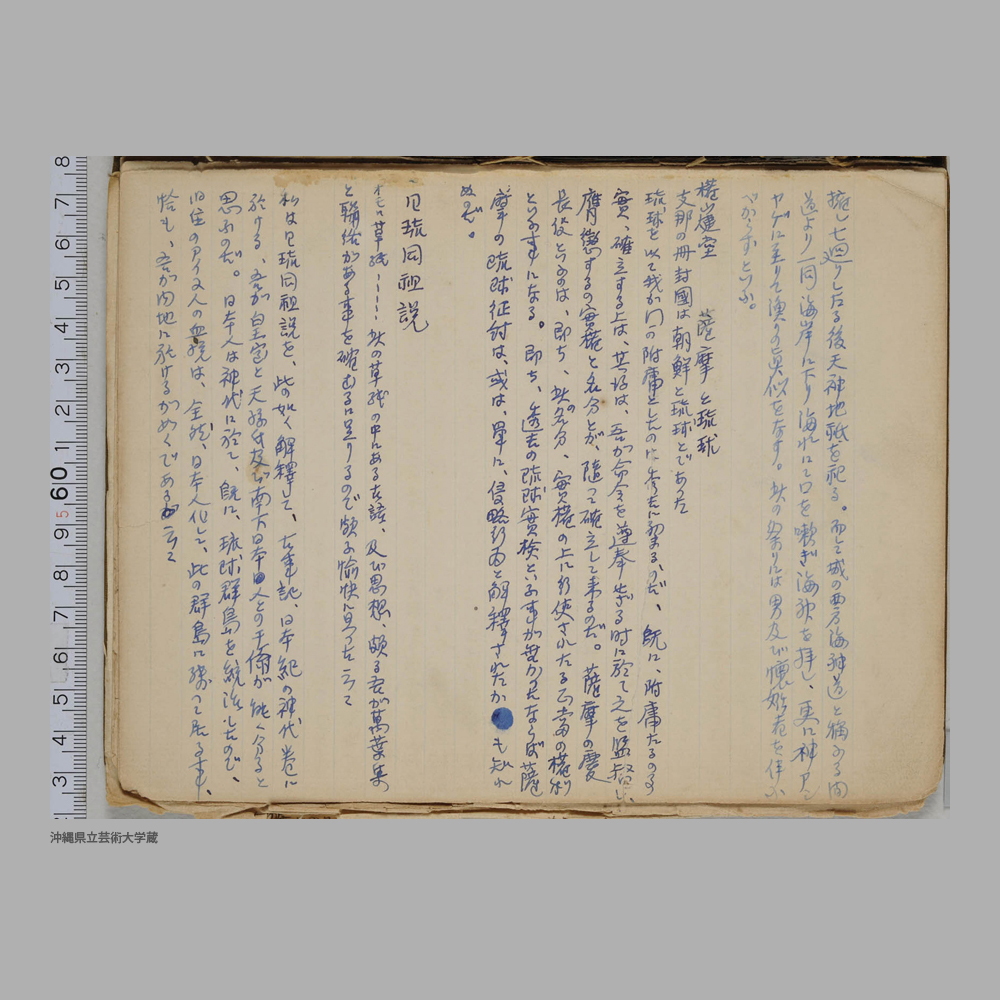 擁し七廻りしたる後天神地祇を祀る。而して城の西方海神道と稱ふる間
道より一同海岸に下り海水にて口を嗽ぎ海神を拝し、更に神アシ
ヤゲに至りて漁りの真似をなす。此の祭りには男及び懐妊者を伴ふ
べからずといふ。
樺山煙堂 薩摩と琉球
支那の冊封國は朝鮮と琉球とであった
琉球を以て我が門の附庸としたのは に初まるのだ、既に、附庸たるの事
實、確立する上は、其 は、吾が命令を遵奉せざる時に於て之を監督し、
膺懲するの實権と名分とが、随って確立して来るのだ。薩摩の慶
長役といふのは、即ち、此の名分、實権の上に行使されたる正當の権利
といふ事になる。即ち、過去の琉球實権といふ事が無かったならば薩
摩の琉球征討は、或は、單に、侵略行為と解釋されたか も知れ
ぬのだ。
日琉同祖説
此の草紙の中にある古語、及び思想、頗る吾が萬葉集
と聯絡がある事を確むるに足りるので頗る愉快に思った云々
私は日琉同祖説を、此の如く解釋して、古事記、日本紀の神代巻に
於ける、吾が皇室と天孫氏及び南方日本人との干係が能く分ると
思ふのだ。日本人は神代に於て、既に、琉球群島を統治したので、
旧住のアイヌ人の血統は、全然、日本人化して、此の群島に残って居る事、
恰も、吾が内地に於けるがめくである云々
8 7 6 5 4 3 2 1 60 9 8 7 6 5 4 3
沖縄県立芸術大学蔵